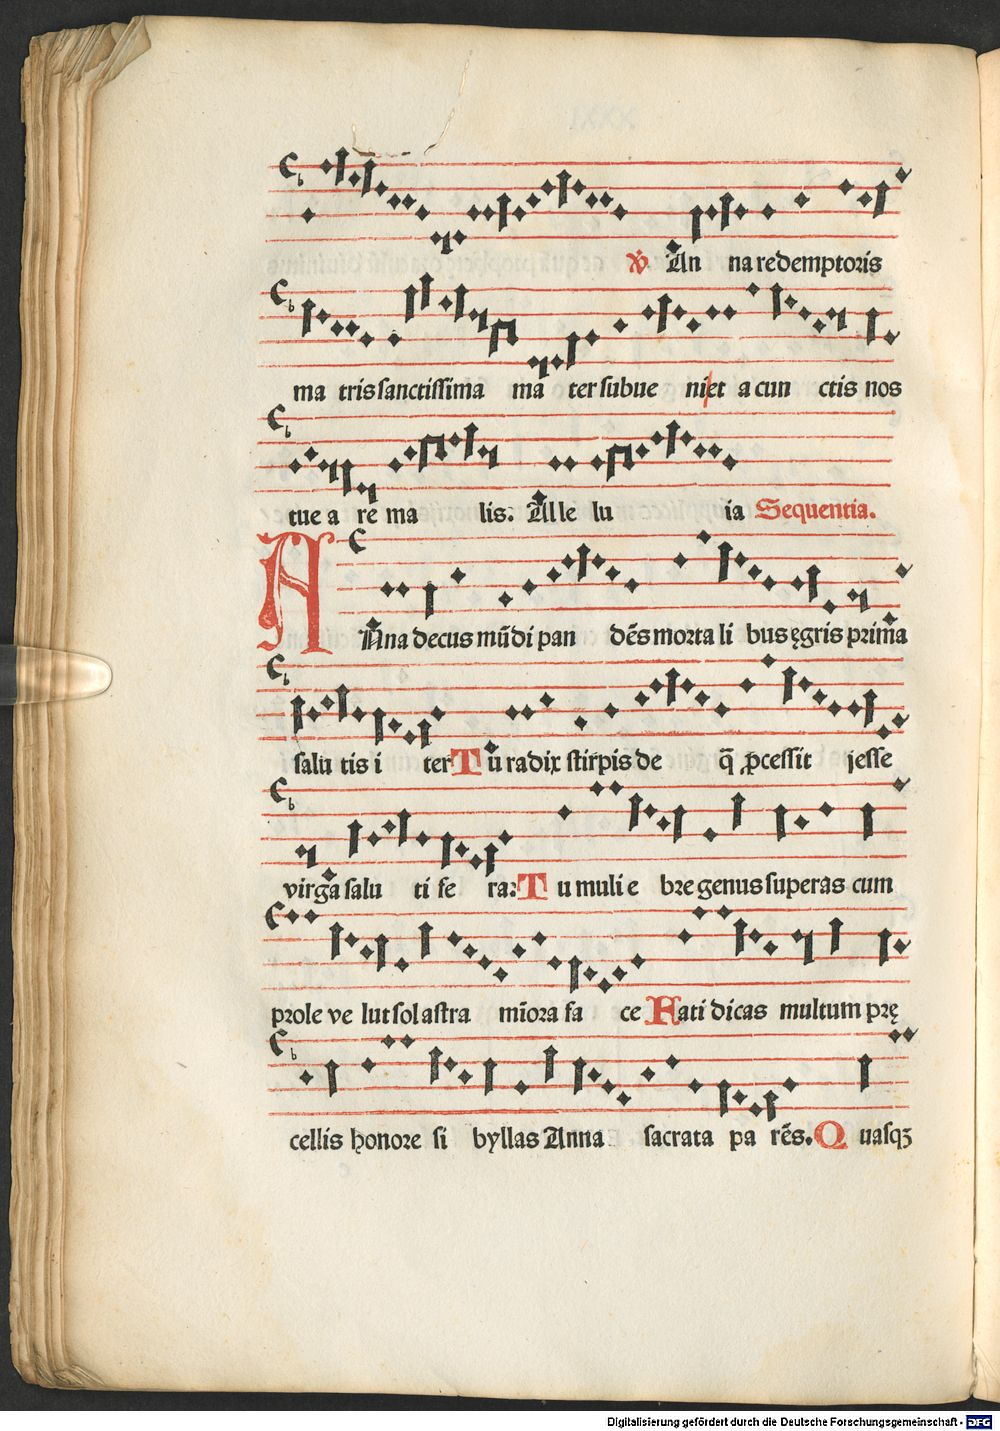 ℣. An na redemptoris
ma tris sanctissima ma ter subue ni et a cun ctis nos
tue a re ma lis. Alle lu ia Sequentia.
Anna decus mūdi pan dēs morta li bus ęgris prima
salu tis i ter Tu radix stirpis de q̄ ꝓcessit iesse
virga salu ti fe ra: Tu muli e bre genus superas cum
prole ve lut sol astra mīora fa ce Fati dicas multum prę
cellis honore si byllas Anna sacrata pa rēs. Quasqꝫ
Digitalisierung gefördert durch die Deutsche Forschungsgemeinschaft - DFG